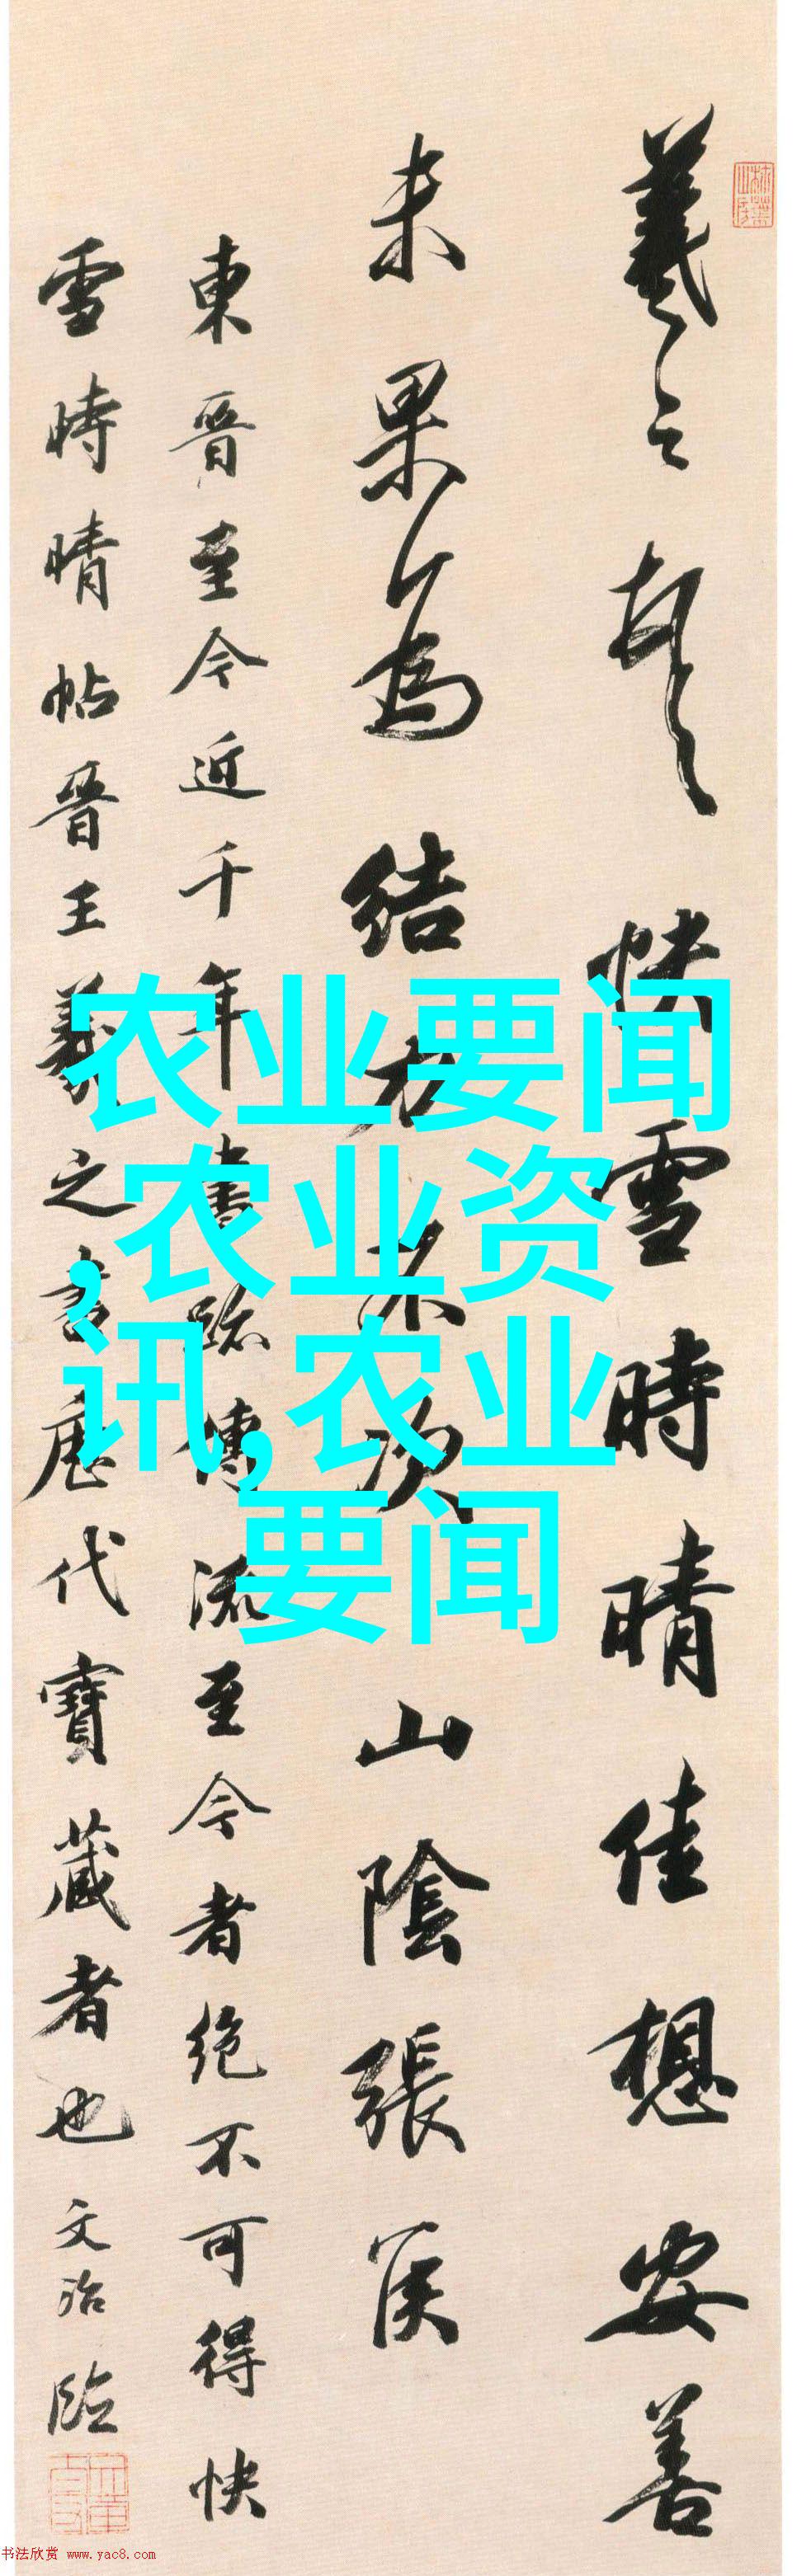 羲之頓首快雪時晴佳想安善
未果為結力不次山陰張侯
東晋至今近千年書跡傳流至今者絶不可得快
雪時晴帖晋王羲之書歷代寶藏者也文治臨
农业要闻
,农业资
讯,农业
要闻
书法欣赏 www.yac8.com